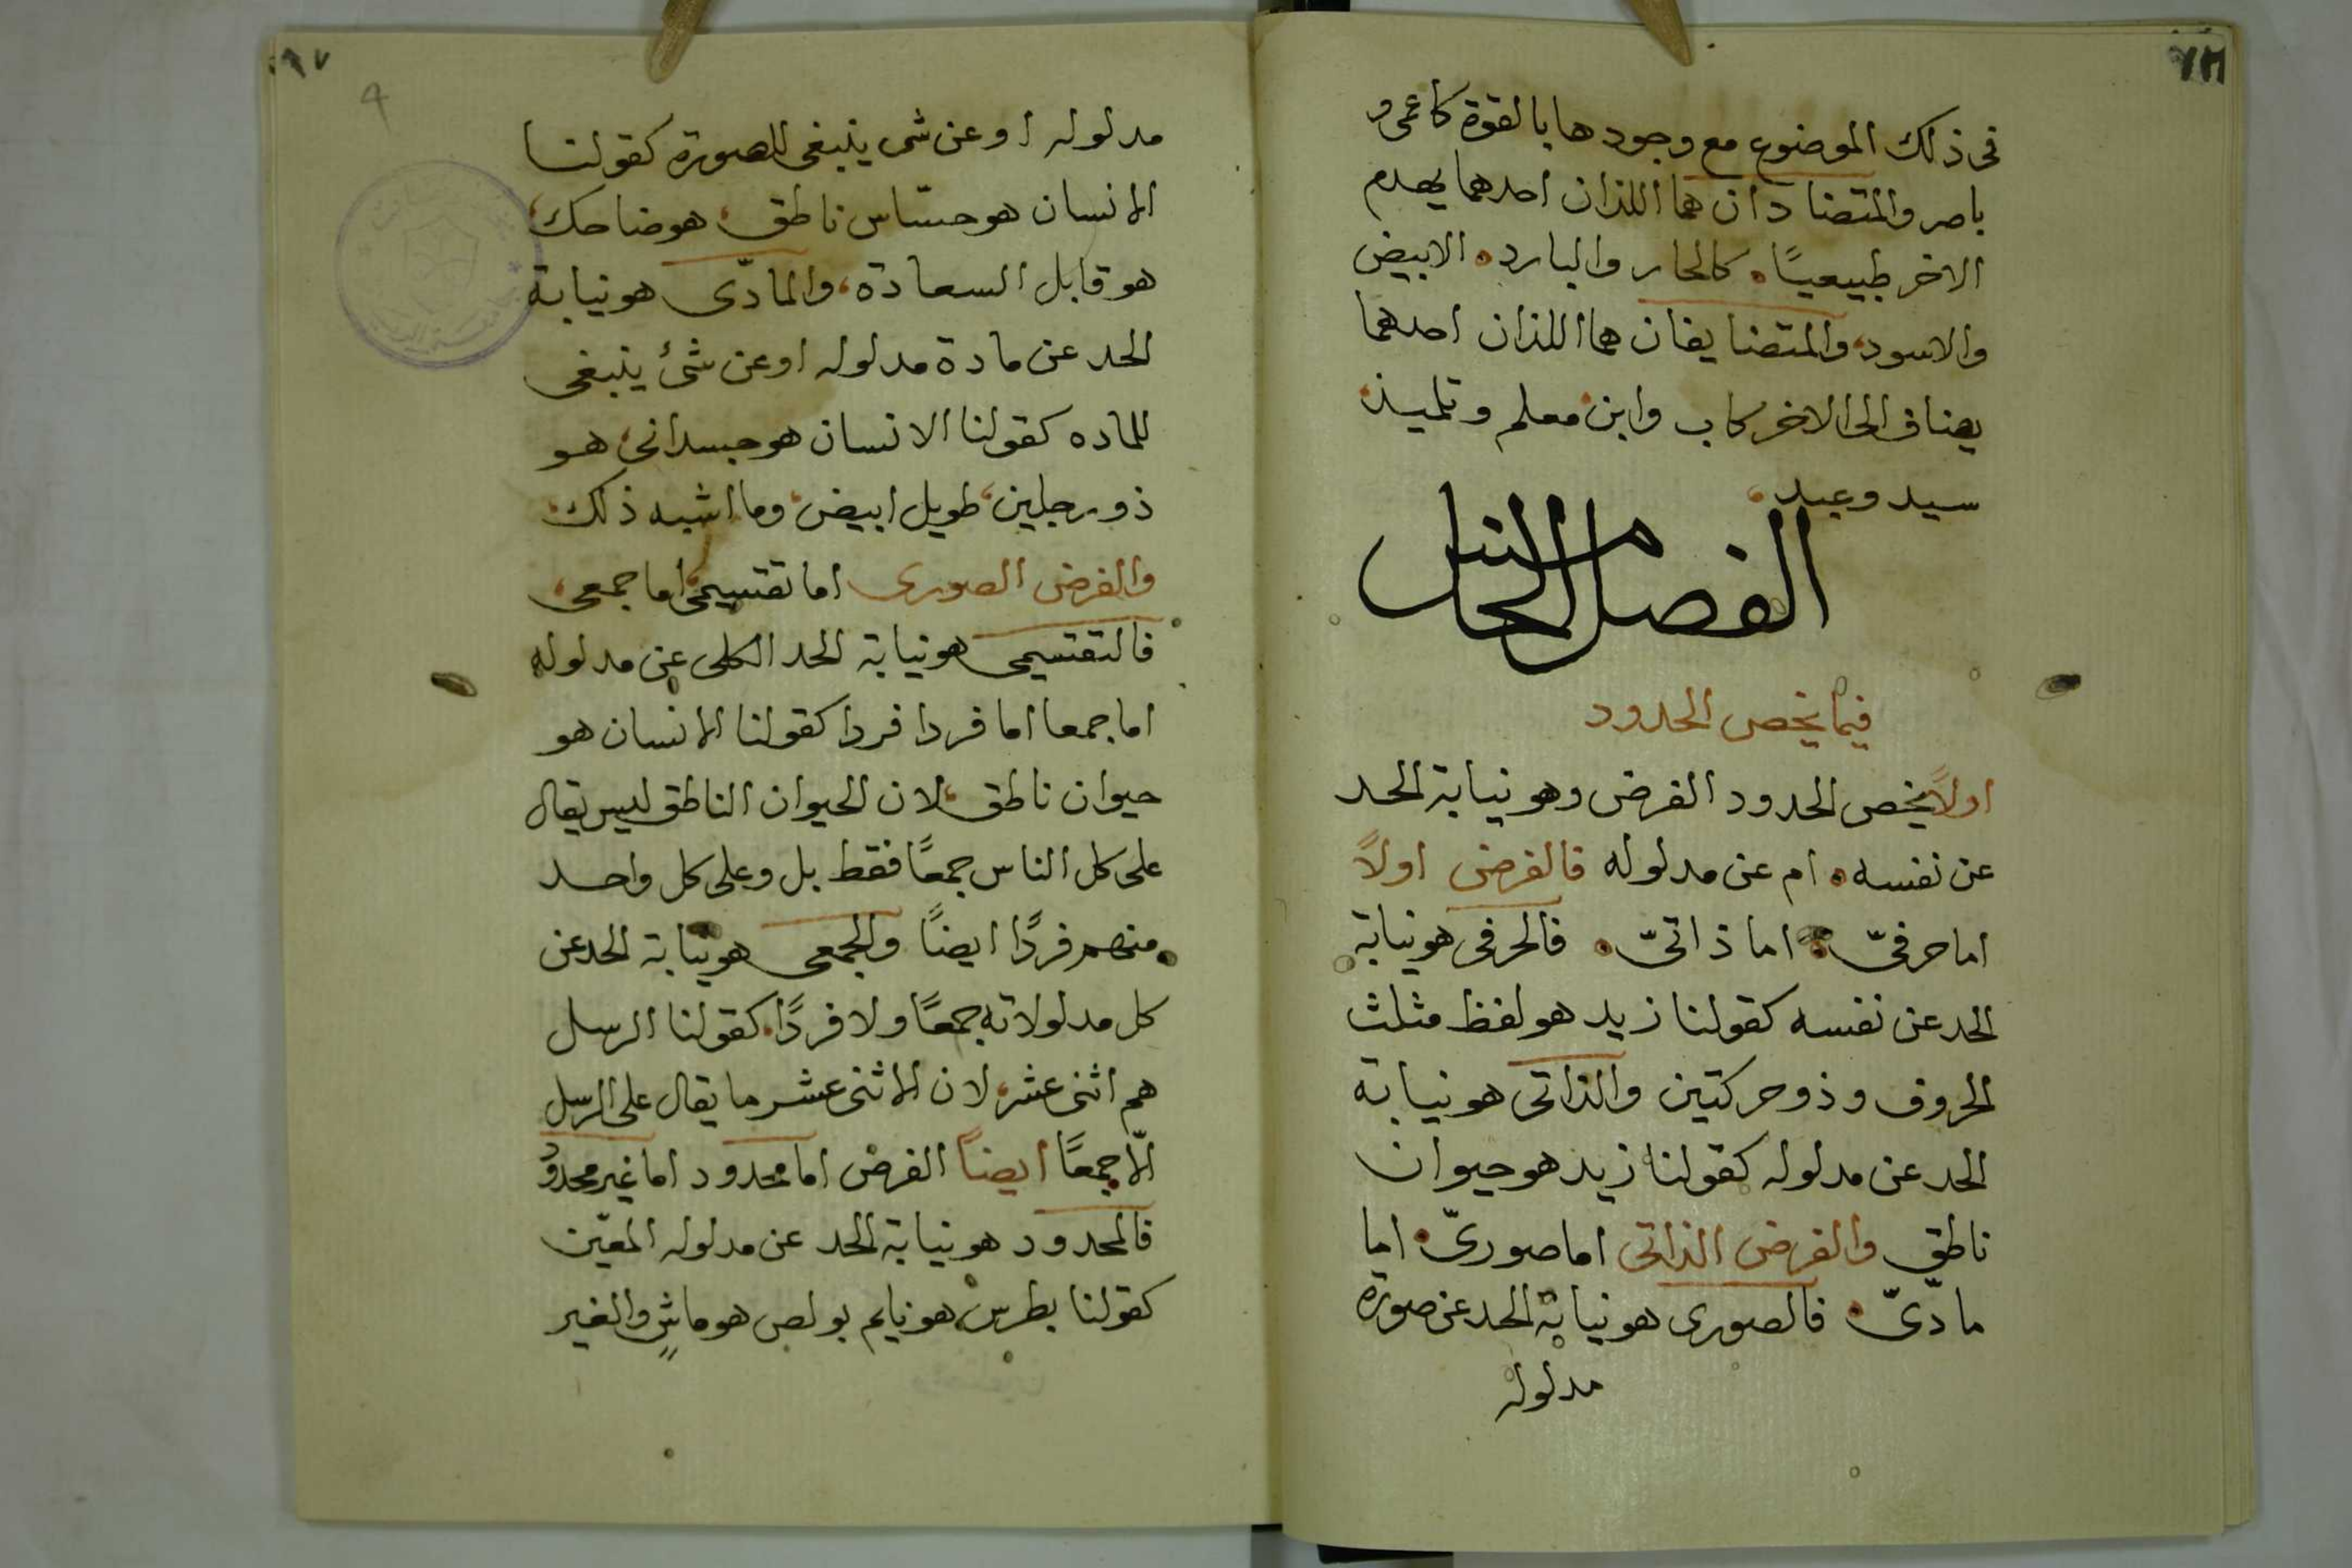 فى ذلك الموضوع مع وجودها بالقوة كاعمى و
باصر والمتضادان هما اللذان احدهما يهدم
الاخر طبيعيًا. كالحار والبارد. الابيض
والاسود، والمتضايفان هما اللذان احدهما
يضاف الى الاخر كاب وابن، معلم وتلميذ،
سيد وعبد،
الفصل الخامس
فيما يخص الحدود
اولاً يخص الحدود الفرض وهو نيابة الحد
عن نفسه. ام عن مدلوله فالفرض اولاً
اما حرفىّ. اما ذاتىّ. فالحرفى هو نيابة
الحد عن نفسه كقولنا زيد هو لفظ مثلث
الحروف وذو حركتين والذاتى هو نيابة
الحد عن مدلوله كقولنا زيد هو حيوان
ناطق والفرض الذاتى اما صورىّ. اما
مادّىّ. فالصورى هو نيابة الحد عن صورة
مدلوله
مدلوله او عن شى ينبغى للصورة كقولنا
الانسان هو حسّاس ناطق، هو ضاحك،
هو قابل السعادة، والمادّى هو نيابة
الحد عن مادة مدلوله او عن شئ ينبغى
للماده كقولنا الانسان هو جسدانى، هو
ذو رجلين، طويل ابيض، وما اشبه ذلك.
والفرض الصورى اما تقسيمى، اما جمعى،
فالتقسيمى هو نيابة الحد الكلى عن مدلوله
اما جمعا اما فردا فردا كقولنا الانسان هو
حيوان ناطق، لان الحيوان الناطق ليس يقال
على كل الناس جمعًا فقط بل وعلى كل واحد
منهم فردًا ايضًا والجمعى هو نيابة الحد عن
كل مدلولاته جمعًا ولا فردًا. كقولنا الرسل
هم اثنى عشر، لان الاثنى عشر ما يقال على الرسل
الّا جمعًا ايضاً الفرض اما محدود اما غير محدود
فالمحدود هو نيابة الحد عن مدلوله المعيّن
كقولنا بطرس هو نايم بولص هو ماشٍ والغير